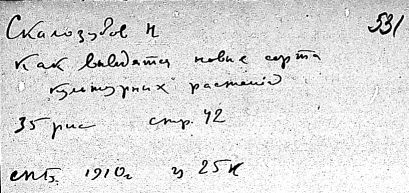 Скалозубов Н 531
как выводятся новые сорта
культурных растений
35 рис стр. 42
спб. 1910г ц 25 к